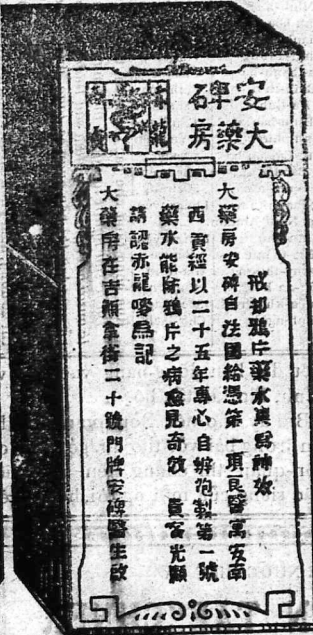 安碑
大藥房
赤龍
戒却鴉片藥水真為神效
大藥房安碑自法國給憑第一項良醫寓安南
西貢經以二十五年專心自辦炮製第一號
藥水能除鴉片之病愈見奇效 貴客光顧
請認赤龍嘜為記
大藥房在吉拿街二十號門牌安碑醫生啟